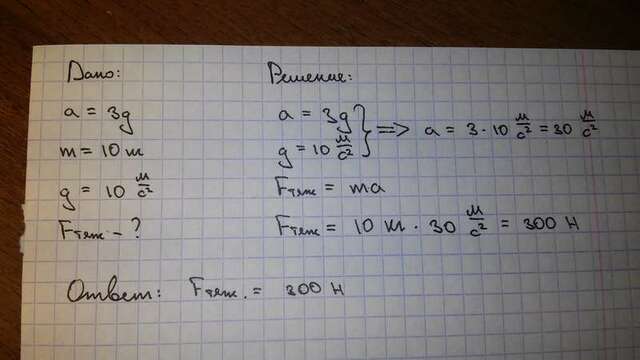 Дано:
a = 3g
m = 10 кг
g = 10 м/с²
Fтяж - ?
Решение:
a = 3g
g = 10 м/с²
} => a = 3 · 10 м/с² = 30 м/с²
Fтяж = ma
Fтяж = 10 кг · 30 м/с² = 300 Н
Ответ: Fтяж. = 300 Н